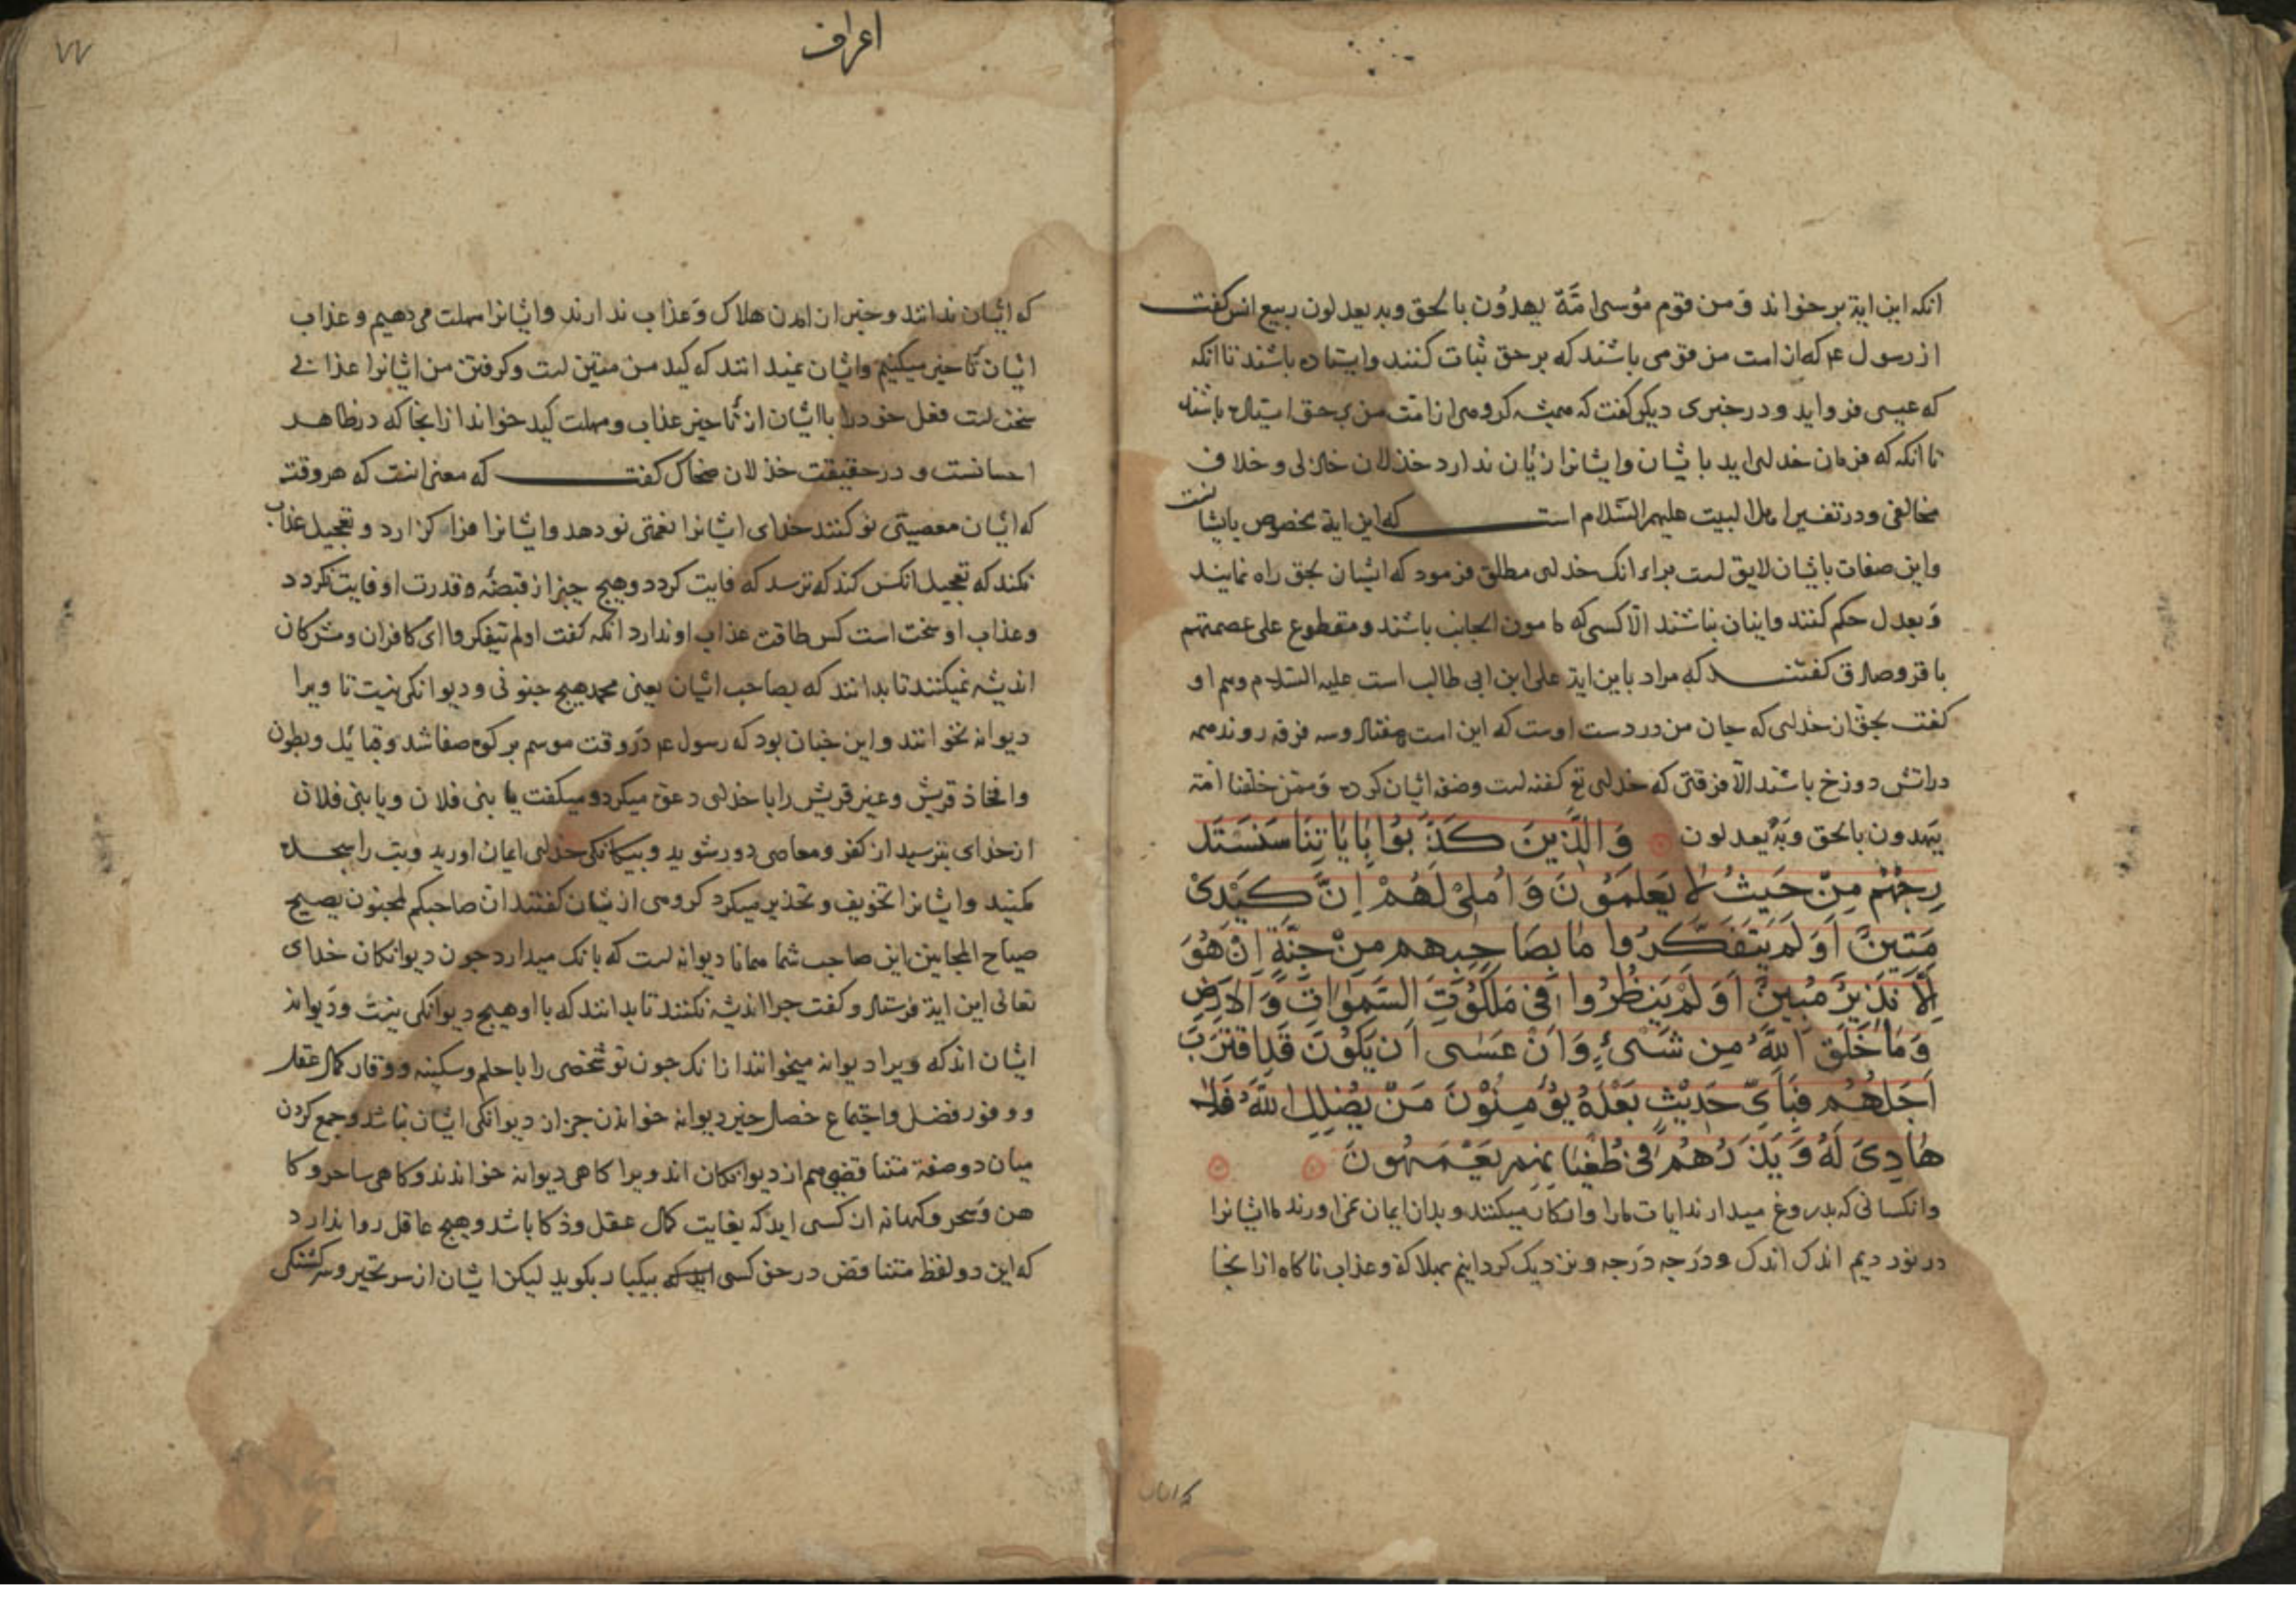 انکه این ایة بر خواند وَ من قوم مُوسی امَّة یهدُون بالحق وبه یعدلون ربیع انس کفت
از رسول ع که از امت من قومی باشند که بر حق ثبات کنند وایستاده باشند تا انکه
که عیسی فرو اید و در خبری دیکر کفت که همیشه کروهی از امت من بر حق استاده باشند
تا انکه که فرمان خدای اید باشان وایشانرا زیان ندارد خذلان خاذلی و خلاف
مخالفی و در تفسیر اهل البیت علیهم السّلام است که این ایة مخصوص بایشانست
واین صفات باشان لایق است براء انک خدای مطلق فرمود که ایشان بحق راه نمایند
وَ بعدل حکم کنند واینان نباشند الّا کسی که مامون الجانب باشند و مقطوع علی عصمتهم
باقر و صادق کفتند که مراد باین ایة علی ابن ابی طالب است علیه السّلام وهم او
کفت بحق ان خدای که جان من در دست اوست که این امت هفتاد وسه فرقه روند همه
در اتش دوزخ باشند الّا فرقتی که خدای تع کفته است وصف ایشان کرده وَ ممّن خلقنا امّة
یهدون بالحق وَبهٖ یعدلون وَالَّذینَ کَذَّبوُا بِایٰاتِنٰا سَنَسْتَد
رِجُهُم مِنْ حَیثُ لٰا یَعلَمَوُنَ وَ اُملیْ لَهُمْ اِنَّ کَیْدیْ
مَتینٌ اَوَ لَم یَتَفَکَّرُوا مٰا بِصٰاحِبِهِم مِنْ جِنَّةٍ اِنْ هُوَ
اِلّٰا نَذیرٌ مُبینٌ اَوَ لَمْ یَنظُرُوا فی مَلَکُوتِ السَّمٰوٰاتِ وَ الْاَرْضِ
وَ مٰا خَلَقَ اللّٰهُ مِن شَیْءٍ وَ اَنْ عَسٰی اَن یَکُونَ قَدِ اقْتَرَبَ
اَجَلُهُم فَبِاَیِّ حَدیثٍ بَعْدَهُ یُؤْمِنُوْنَ مَنْ یُضْلِلِ اللّٰهُ فَلٰا
هٰادِیَ لَهُ وَ یَذَرُهُمْ فی طُغْیٰانِهِم یَعْمَهُونَ
وانکسانی که بدروغ میدارند ایات مارا وانکار میکنند و بدان ایمان نمی اورند ما ایشانرا
در نوردیم اندک اندک و دَرجه دَرجه و نزدیک کردانیم بهلاکة وعذاب ناکاه از انجا
اعراف
که ایشان ندانند و خبر از امدن هلاک وَ عذاب ندارند وایشانرا مهلت می دهیم و عذاب
ایشان تأخیر میکنیم وایشان نمیدانند که کید من متین است وکرفتن من ایشانرا عذابی
سخت است فعل خود را باایشان از تأخیر عذاب ومهلت کید خواند از انجا که در ظاهر
احسانست و در حقیقت خذلان ضحاک کفت که معنی انست که هر وقت
که ایشان معصیتی نو کنند خدای ایشانرا نعمتی نو دهد وایشانرا فرا کذارد و تعجیل عذاب
نکند که تعجیل انکس کند که ترسد که فایت کردد وهیچ چیز از قبضهٔ وقدرت او فایت نکردد
وعذاب او سخت است کس طاقت عذاب او ندارد انکه کفت اولم یتفکروا ای کافران ومشرکان
اندیشه نمیکنند تا بدانند که بصاحب ایشان یعنی محمد هیچ جنونی و دیوانکی نیست تا ویرا
دیوانه نخوانند واین چنان بود که رسول ع دَر وقت موسم بر کوه صفا شد وقبائل وبطون
وافخاذ قریش وغیر قریش را با خدای دعوت میکرد و میکفت یا بنی فلان ویا بنی فلان
از خدای بترسید از کفر ومعاصی دور شوید و بیکانکی خدای ایمان اورید وبت را سجده
مکنید وایشانرا تخویف و تحذیر میکرد کروهی از یشان کفتند انّ صاحبکم لمجنون یصیح
صیاح المجانین این صاحب شما همانا دیوانه است که بانک میدارد جون دیوانکان خدای
تعالی این ایة فرستاد و کفت جرا اندیشه نکنند تا بدانند که بااو هیچ دیوانکی نیست ودیوانه
ایشان اند که ویرا دیوانه میخوانند از انک جون تو شخصی را با حلم وسکینه ووقار کمال عقل
و وفور فضل واجتماع خصال خیر دیوانه خواندن جز از دیوانکی ایشان نباشد وجمع کردن
میان دو صفة متناقض هم از دیوانکان اند ویرا کاهی دیوانه خواندند وکاهی ساحر وکا
هن وَ سحر وکهانه از کسی اید که بغایت کمال عقل وذکا باشد وهیچ عاقل روا ندارد
که این دو لفظ متناقض در حق کسی اید که بیکبار بکوید لیکن ایشان از سر تحیر وسرکشتکی